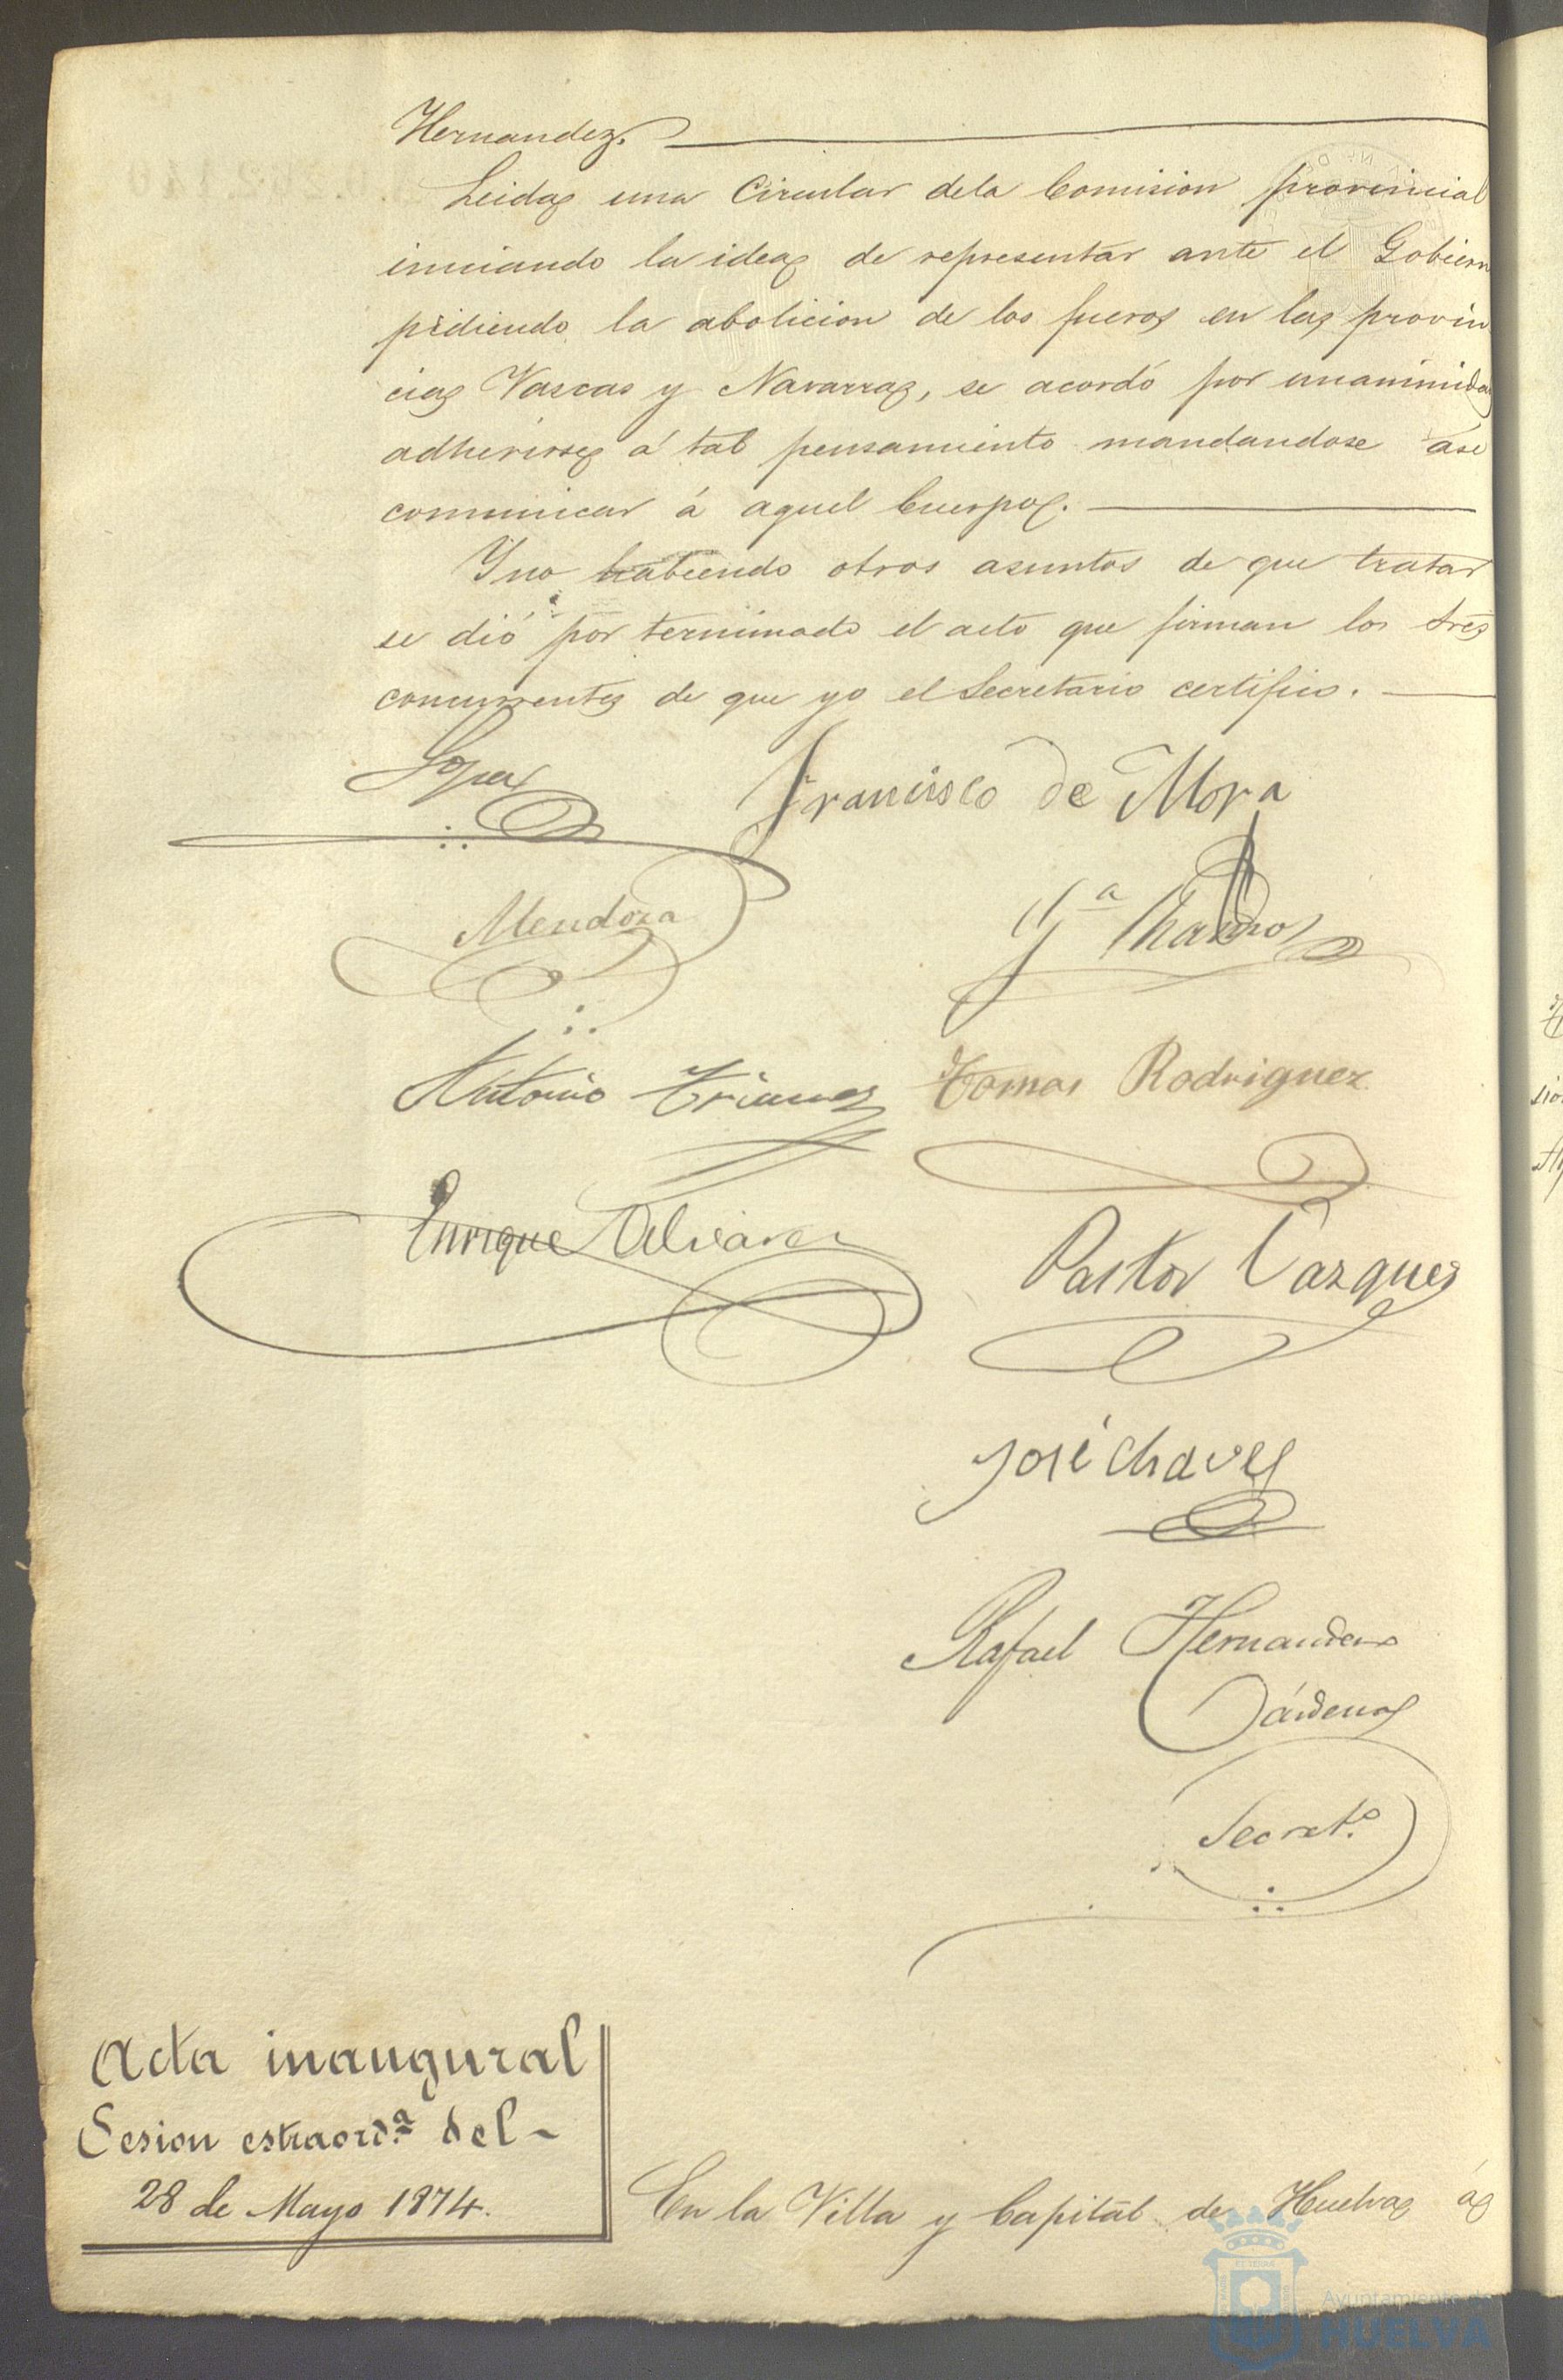 Hernandez.
Leida una Circular dela Comision provincial
iniciando la idea de representar ante el Gobiern
pidiendo la abolicion de los fueros en las provin
cias Vascas y Navarra, se acordó por unanimida
adherirse á tal pensamiento mandandose asi
comunicar á aquel Cuerpo.
Y no habiendo otros asuntos de que tratar
se dió por terminado el acto que firman los Sres
concurrentes de que yo el Secretario certifico.
Lopez
Francisco de Mora
Mendoza
Antonio
Tomas Rodriguez
Enrique Alvarez
Pastor Vazquez
José Chaves
Rafael Hernandez
Cárdenas
Secret.o
Acta inaugural
Sesion estraord.a del
28 de Mayo 1874.
En la Villa y Capital de Huelva á
Ayuntamiento de
HUELVA